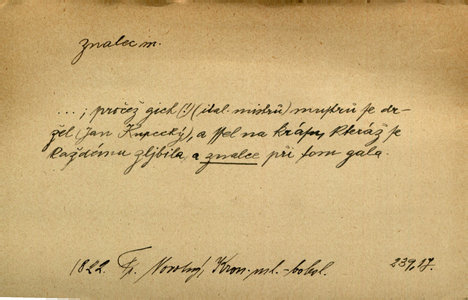 znalec m.
...; pročež gich (!) (ital. mistrů) mustrů se dr-
žel (Jan Kupecký), a ssel na krásu, kteráž se
každému zljbila a znalce při tom gala.
1822. Fr. Novotný, Kron. ml.-bolsl. 239,17.